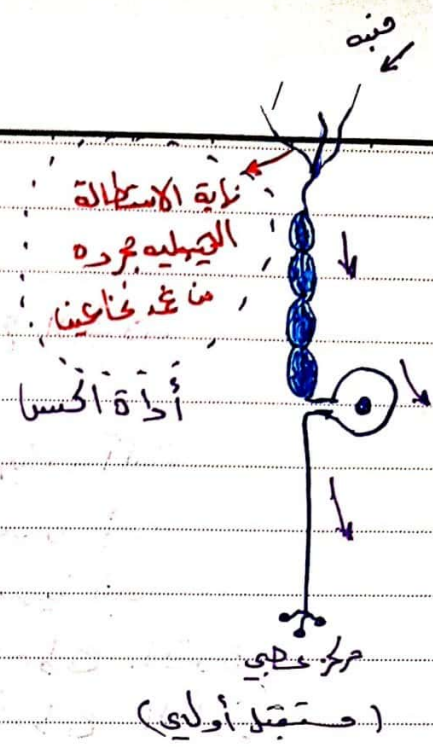 منبه
نهاية الاستطالة
الهيولية مجردة
من غمد نخاعين
أداة الحس
مركز عصبي
(مستقبل أولي)